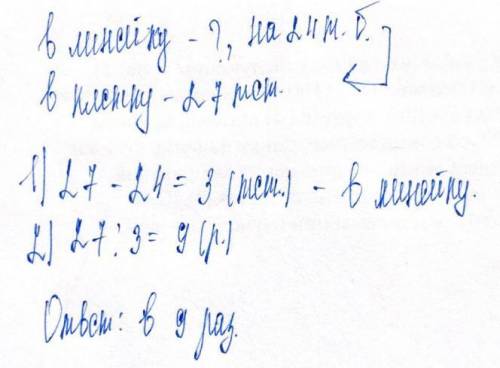 в линейку - ?, на 24 т. б.
в клетку - 27 тет.
1) 27 - 24 = 3 (тет.) - в линейку.
2) 27 : 3 = 9 (р.)
Ответ: в 9 раз.